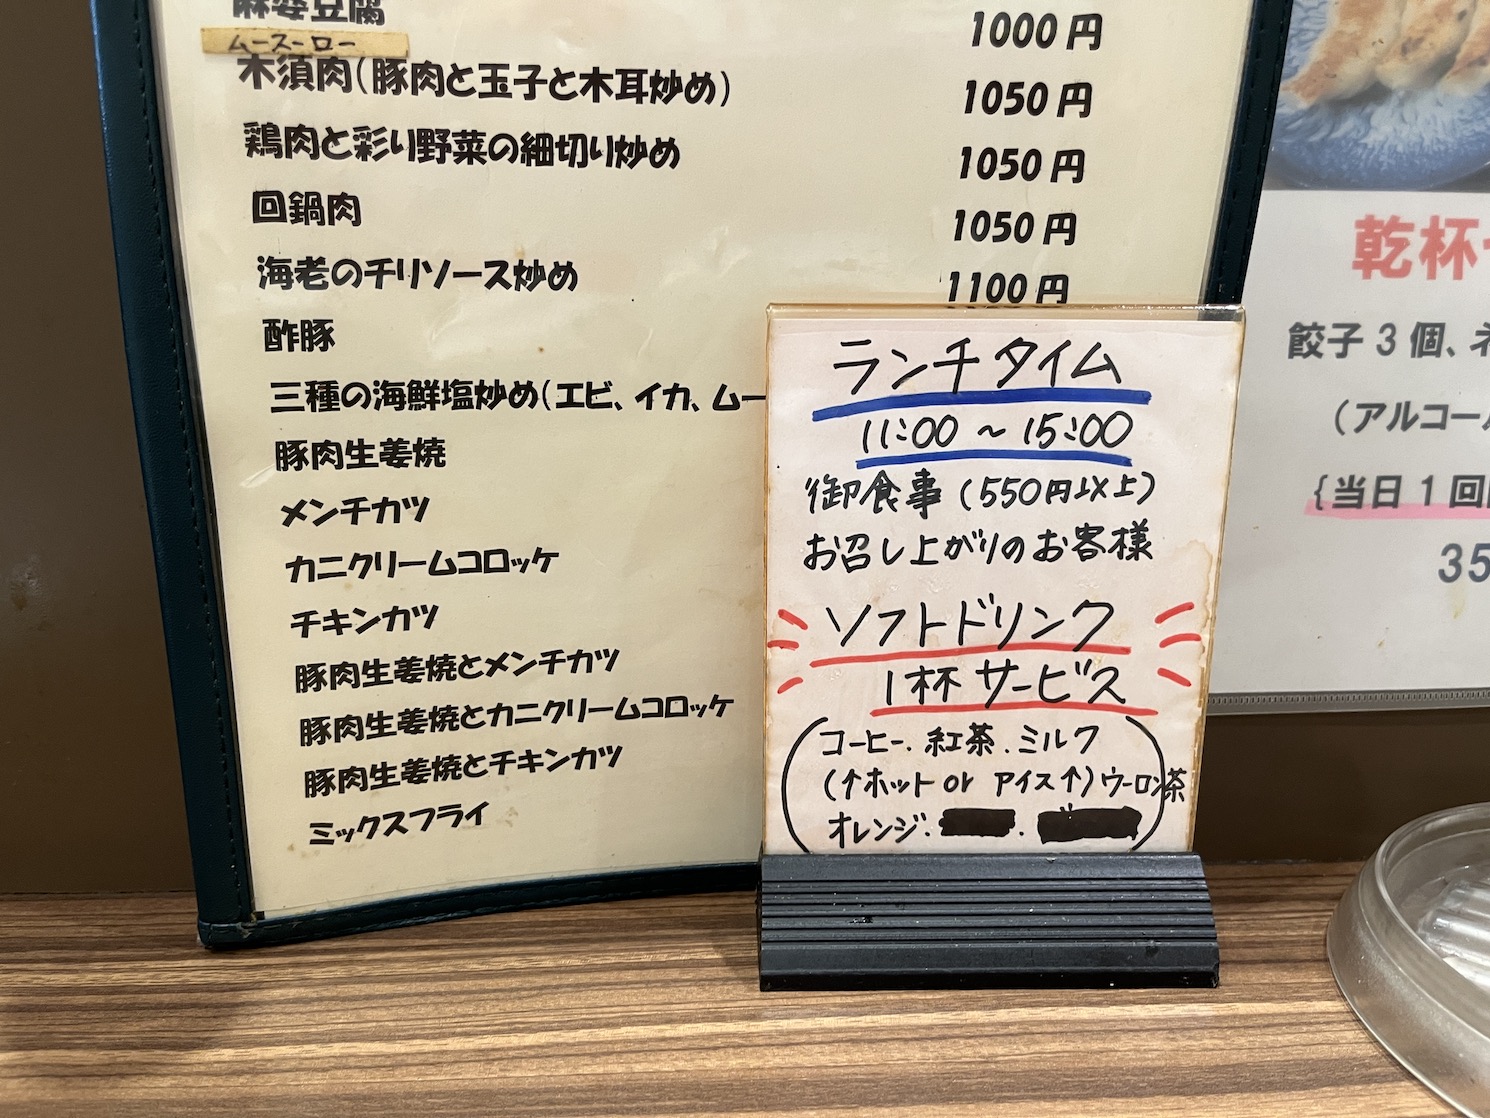 麻婆豆腐 1000円
ムースーロー
木須肉(豚肉と玉子と木耳炒め) 1050円
鶏肉と彩り野菜の細切り炒め 1050円
回鍋肉 1050円
海老のチリソース炒め 1100円
酢豚
三種の海鮮塩炒め(エビ、イカ、ムー
豚肉生姜焼
メンチカツ
カニクリームコロッケ
チキンカツ
豚肉生姜焼とメンチカツ
豚肉生姜焼とカニクリームコロッケ
豚肉生姜焼とチキンカツ
ミックスフライ
ランチタイム
11:00 ~ 15:00
御食事(550円以上)
お召し上がりのお客様
ソフトドリンク
1杯サービス
(コーヒー.紅茶.ミルク
(↑ホット or アイス↑)ウーロン茶
オレンジ.
乾杯
餃子3個、ネ
(アルコール
{当日1回
35